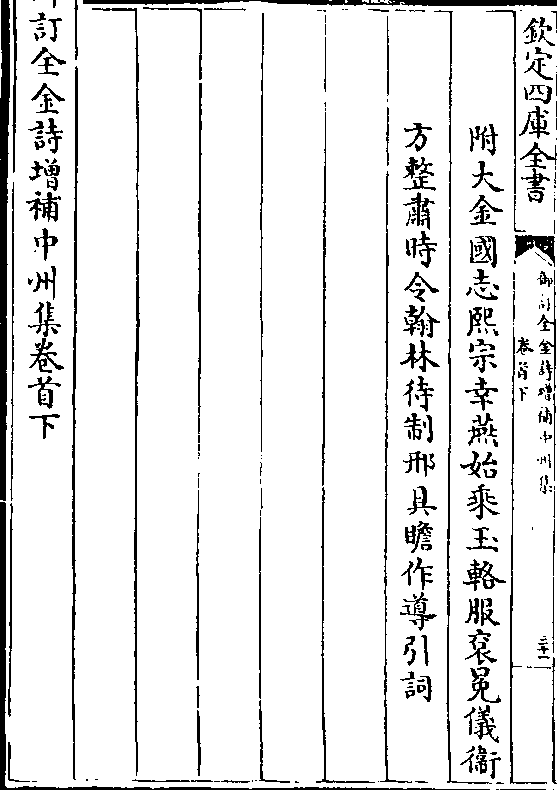 欽定四庫全書
御訂全金詩增補中州集
卷首下
三十一
附大金國志熙宗幸燕始乘玉輅服衮冕儀衞
方整肅時令翰林待制邢具瞻作導引詞
訂全金詩增補中州集卷首下